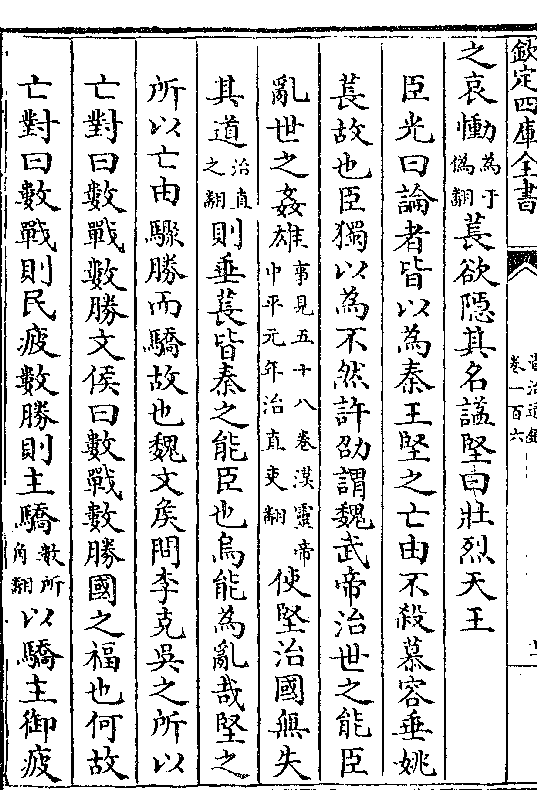 欽定四庫全書
卷一百六
之哀慟為于偽翻萇欲隱其名諡堅曰壯烈天王
臣光曰論者皆以為秦王堅之亡由不殺慕容垂姚
萇故也臣獨以為不然許劭謂魏武帝治世之能臣
亂世之姦雄事見五十八卷漢靈帝中平元年治直吏翻使堅治國無失
其道治直之翻則垂萇皆秦之能臣也烏能為亂哉堅之
所以亡由驟勝而驕故也魏文侯問李克吳之所以
亡對曰數戰數勝文侯曰數戰數勝國之福也何故
亡對曰數戰則民疲數勝則主驕數所角翻以驕主御疲